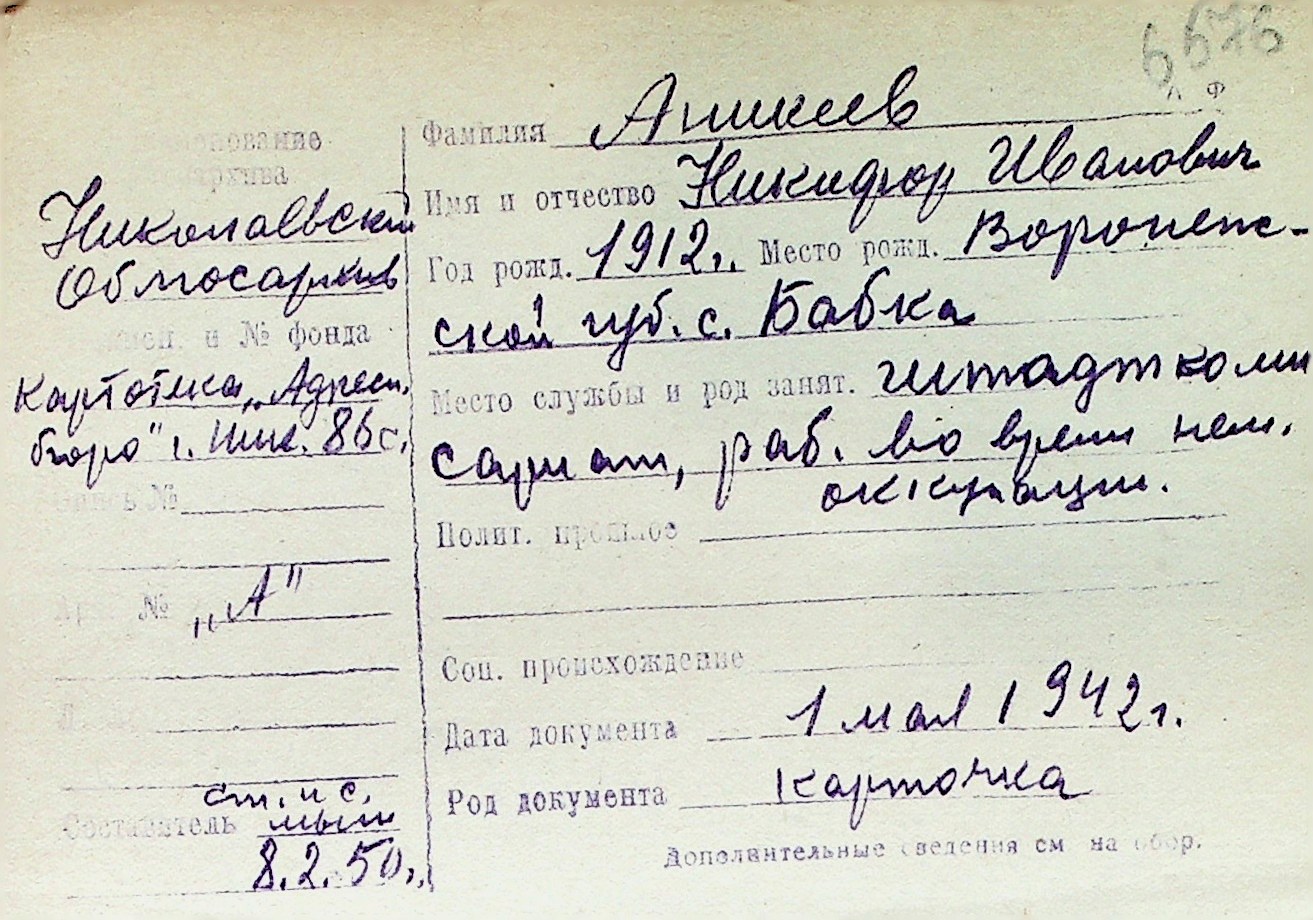 6576
Л Ф
Наименование
архива
Николаевский
Облгосархив
и № фонда
Картотека „Адресн.
бюро" г. Ник. 86с.
Опись №
Арх. № „А"
ст. н с.
Составитель
8.2.50г.
Фамилия Аникеев
Имя и отчество Никифор Иванович
Год рожд. 1912г. Место рожд. Воронеж-
ской губ. с. Бабка
Место службы и род занят. штадткоми
сариат, раб. во время нем.
оккупации.
Полит. прошлое
Соц. происхождение
Дата документа 1 мая 1942г.
Род документа карточка
Дополнительные сведения см на обор.